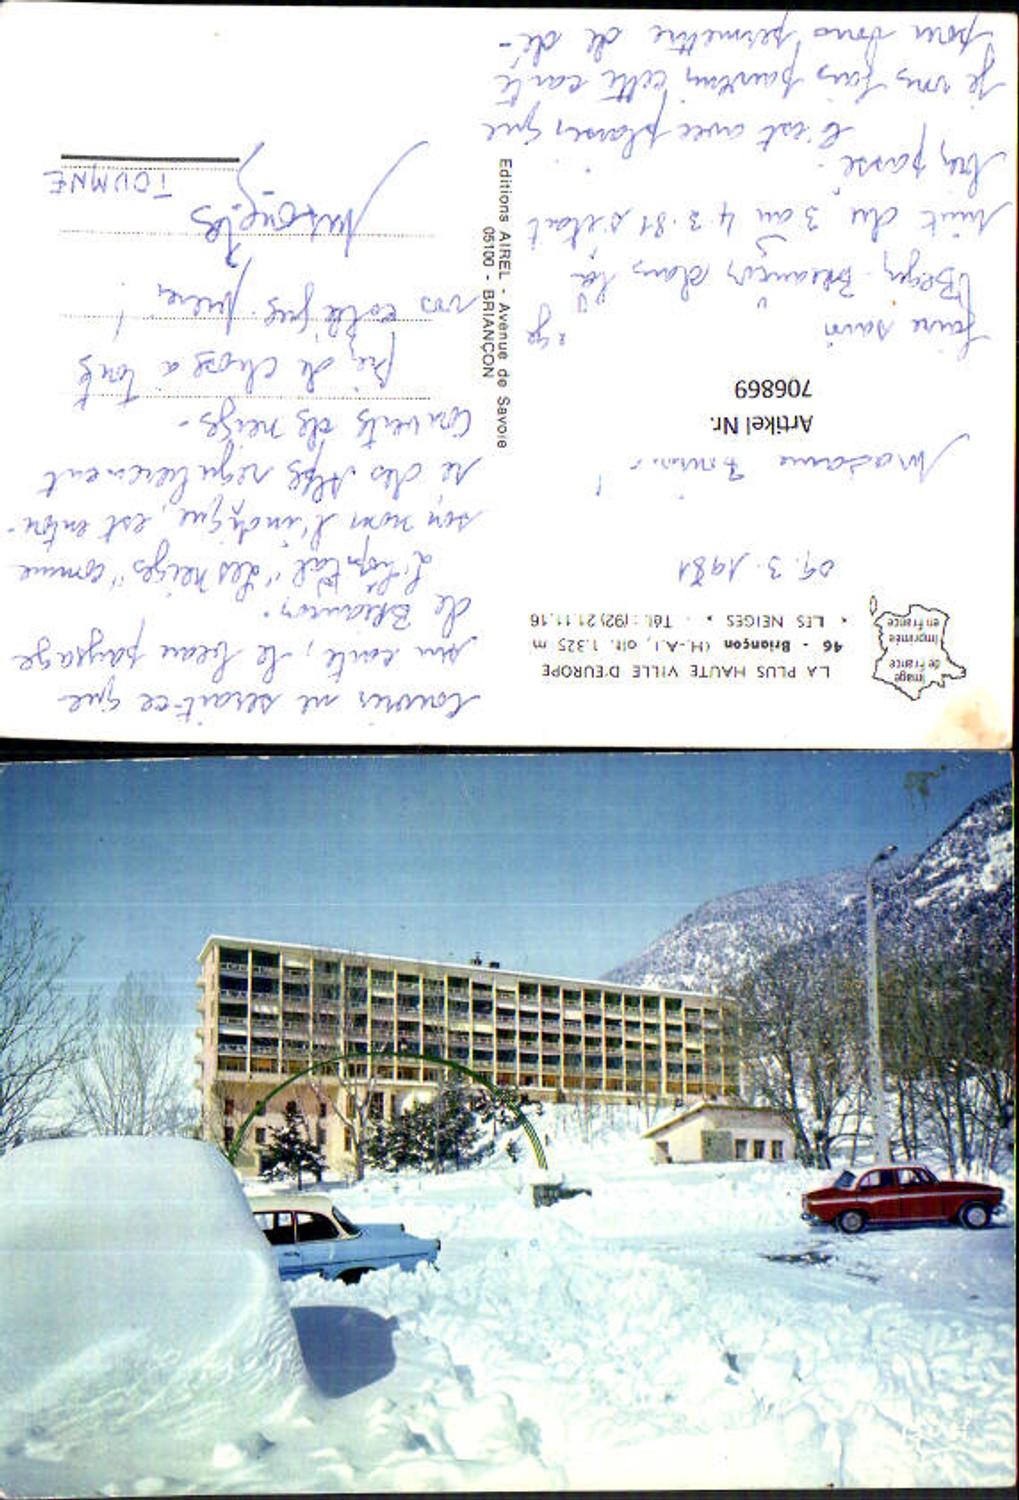 LA PLUS HAUTE VILLE D'EUROPE
46 - Briançon (H.-A.), alt. 1.325 m
« LES NEIGES » - Tél. : (92) 21.11.16
Image
de France
imprimée
en France
09.3.1981
Madame
Artikel Nr.
706869
faire suivi
Briançon dans la
nuit du 3 au 4.3.81 s'était
bien passé.
C'est avec plaisir que
je vous fais parvenir cette carte
pour vous permettre de dé-
Editions AIREL - Avenue de Savoie
05100 - BRIANÇON
couvrir ne serait-ce que
sur carte, le beau paysage
de Briançon.
L'hôpital "les neiges" comme
son nom l'indique, est entou-
ré des Alpes régulièrement
couverts de neige.
de chose à tous
vos collègues
TOUMNE